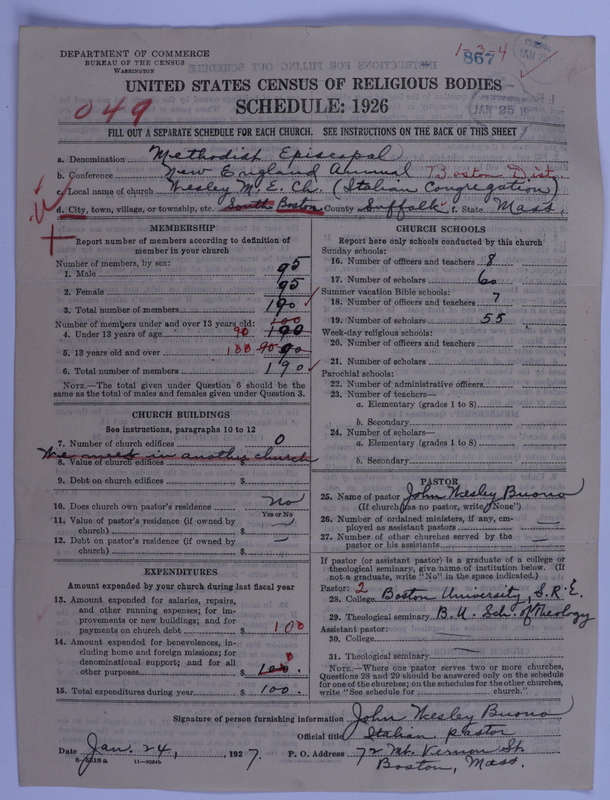 DEPARTMENT OF COMMERCE
BUREAU OF THE CENSUS
WASHINGTON
1-3-4
867
JAN 25
UNITED STATES CENSUS OF RELIGIOUS BODIES
SCHEDULE: 1926
049
FILL OUT A SEPARATE SCHEDULE FOR EACH CHURCH. SEE INSTRUCTIONS ON THE BACK OF THIS SHEET
a. Denomination Methodist Episcopal
b. Conference New England Annual Boston Dist.
c. Local name of church Wesley M. E. Ch. (Italian Congregation)
d. City, town, village, or township, etc. South Boston County Suffolk f. State Mass.
MEMBERSHIP
Report number of members according to definition of
member in your church
Number of members, by sex:
1. Male 95
2. Female 95
3. Total number of members 190
Number of members under and over 13 years old: 100
4. Under 13 years of age 90 100
5. 13 years old and over 100 90 90
6. Total number of members 190
NOTE.—The total given under Question 6 should be the
same as the total of males and females given under Question 3.
CHURCH BUILDINGS
See instructions, paragraphs 10 to 12
7. Number of church edifices 0
We meet in another church
8. Value of church edifices $
9. Debt on church edifices $
10. Does church own pastor's residence no
Yes or No
11. Value of pastor's residence (if owned by
church) $ —
12. Debt on pastor's residence (if owned by
church) $ —
EXPENDITURES
Amount expended by your church during last fiscal year
13. Amount expended for salaries, repairs,
and other running expenses; for im-
provements or new buildings; and for
payments on church debt $ 100
14. Amount expended for benevolences, in-
cluding home and foreign missions; for
denominational support; and for all 0
other purposes $ 100.
15. Total expenditures during year $ 100.
CHURCH SCHOOLS
Report here only schools conducted by this church
Sunday schools:
16. Number of officers and teachers 8
17. Number of scholars 60
Summer vacation Bible schools:
18. Number of officers and teachers 7
19. Number of scholars 55
Week-day religious schools:
20. Number of officers and teachers
21. Number of scholars
Parochial schools:
22. Number of administrative officers
23. Number of teachers—
a. Elementary (grades 1 to 8)
b. Secondary
24. Number of scholars—
a. Elementary (grades 1 to 8)
b. Secondary
PASTOR
25. Name of pastor John Wesley Buono
(If church has no pastor, write "None")
26. Number of ordained ministers, if any, em-
ployed as assistant pastors —
27. Number of other churches served by the
pastor or his assistants —
If pastor (or assistant pastor) is a graduate of a college or
theological seminary, give name of institution below. (If
not a graduate, write "No" in the space indicated.)
Pastor: 2
28. College Boston University, S.R.E.
29. Theological seminary B.U. Sch. of Theology
Assistant pastor:
30. College —
31. Theological seminary —
NOTE.—Where one pastor serves two or more churches,
Questions 28 and 29 should be answered only on the schedule
for one of the churches; on the schedules for the other churches,
write "See schedule for church."
Signature of person furnishing information John Wesley Buono
Official title Italian pastor
Date Jan. 24, 1927. P. O. Address 72 Mt. Vernon St.
Boston, Mass.
8-5518a 11-9064b